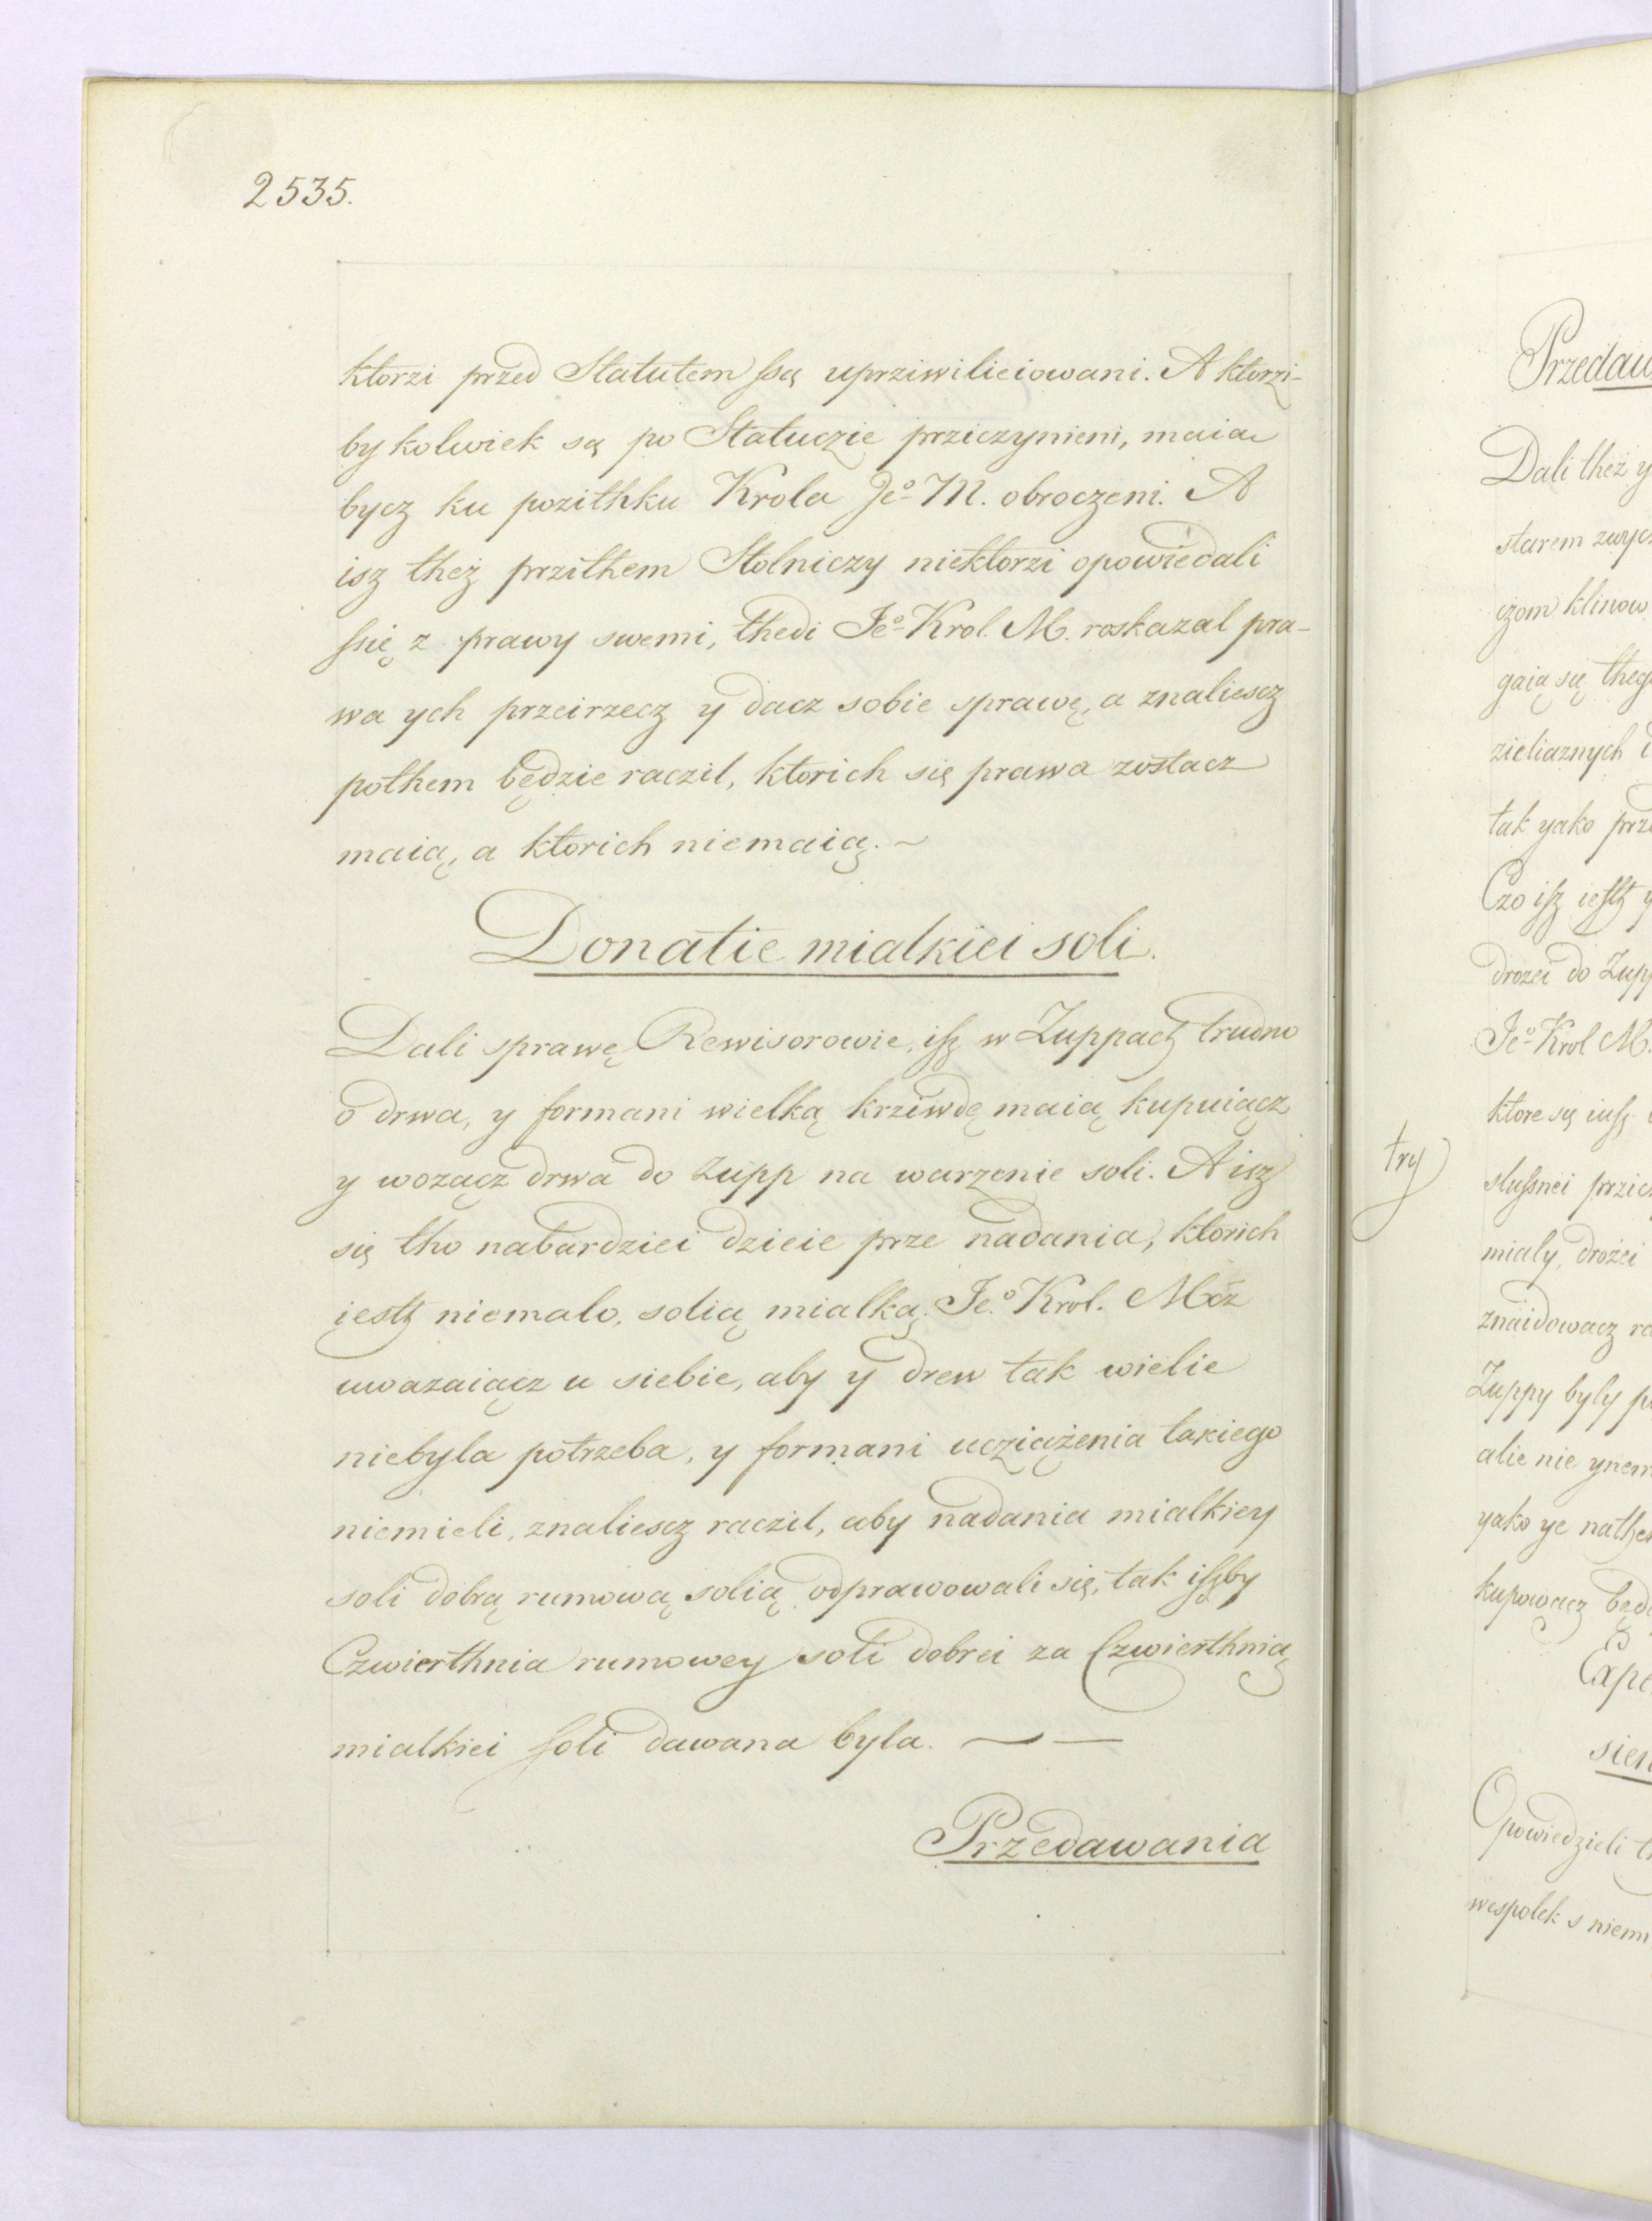 2535.
ktorzi przed Statutem ssą uprziwilieiowani. A ktorzi-
by kolwiek są po Statuczie prziczynieni, maią
bycz ku pozithku Krola Jeo M. obroczeni. A
isz theż przithem Stolniczy niektorzi opowiedali
ssię z prawy swemi, thedi Jeo Krol. M. roskazal pra-
wa ych przeirzecz y dacz sobie sprawę, a znaliescz
pothem będzie raczil, ktorich się prawa zostacz
maią, a ktorich niemaią. ~
Donatie mialkiei soli.
Dali sprawę Rewisorowie, isz w Zuppach trudno
o drwa, y formani wielką krziwdę maią kupuiącz
y wozącz drwa do Zupp na warzenie soli. A isz
się tho nabardziei dzieie prze nadania, ktorich
iestz niemalo, solią mialką. Jeo Krol. Mcz
uwazaiącz u siebie, aby y drew tak wielie
niebyla potrzeba, y formani ucziążenia takiego
niemieli, znaliescz raczil, aby nadania mialkiey
soli dobrą rumową solią odprawowali się, tak iszby
Czwierthnia rumowey soli dobrei za Czwierthnią
mialkiei soli dawana byla. ~ —
Przedawania
Przedaw
Dali theż y
starem zwycz
czom klinow
gaią się theg
zieliaznych
tak yako prz
Czo isz iestz y
drozei do Zupp
Jeo Krol M.
ktore są iusz
try
slussnei przicz
mialy, drożei
znaidowacz ra
Zuppy byly p
alie nie ynem
yako ye nathe
kupowacz będ
Expe
sien
Opowiedzieli t
wespolek s niemi